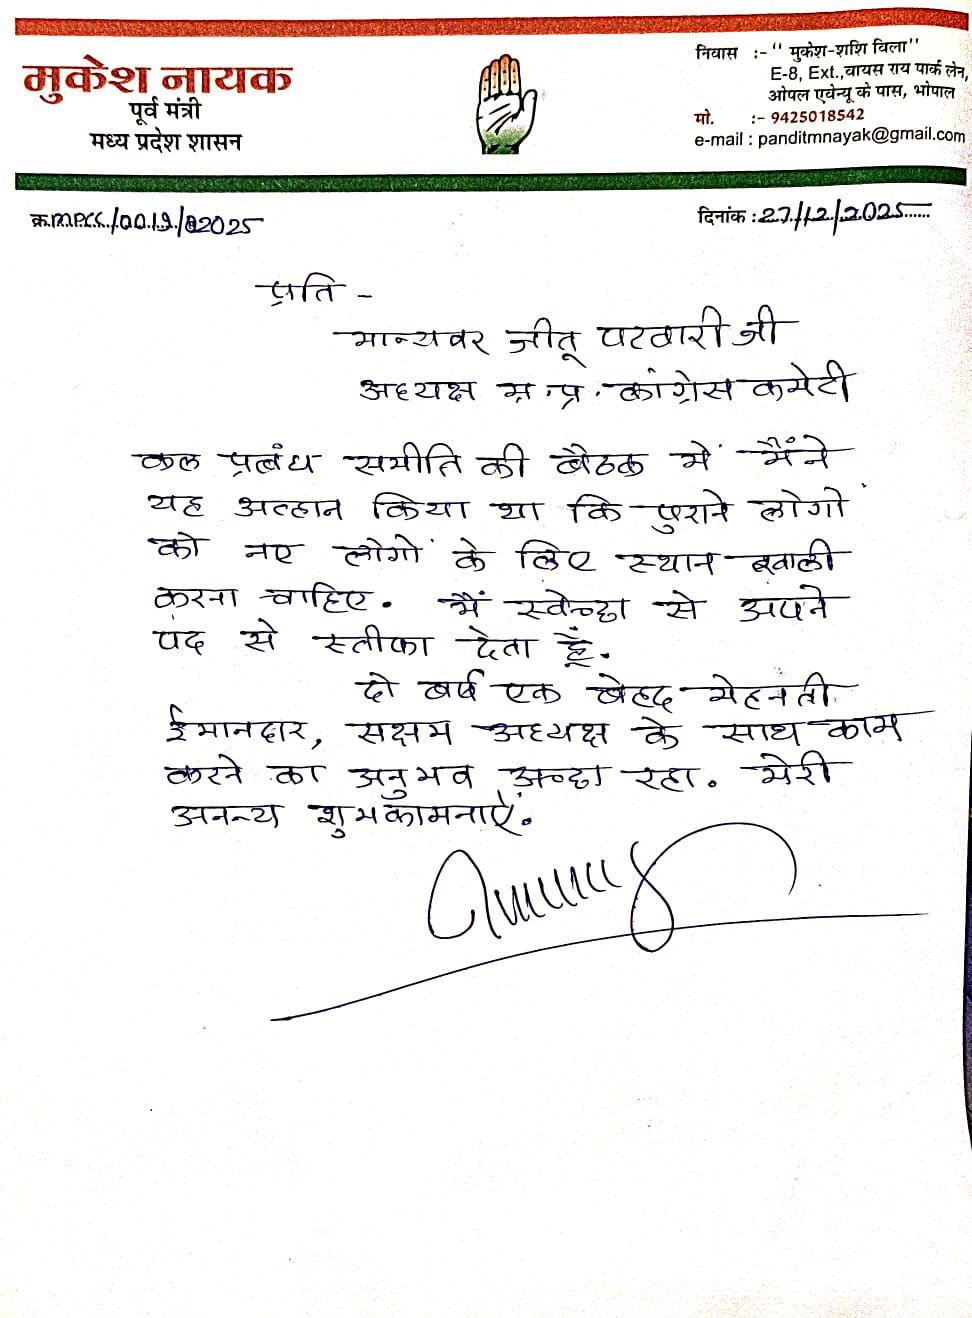 मुकेश नायक
पूर्व मंत्री
मध्य प्रदेश शासन
निवास :- " मुकेश-शशि विला"
E-8, Ext.,वायस राय पार्क लेन,
ओपल एवेन्यू के पास, भोपाल
मो. :- 9425018542
e-mail : panditmnayak@gmail.com
क्र.M.P.C.C./0019/2025
दिनांक :27/12/2025
प्रति -
मान्यवर जीतू पटवारी जी
अध्यक्ष म.प्र. कांग्रेस कमेटी
कल प्रबंध समीति की बैठक में मैंने
यह आव्हान किया था कि पुराने लोगों
को नए लोगों के लिए स्थान खाली
करना चाहिए. मैं स्वेच्छा से अपने
पद से स्तीफा देता हूँ.
दो वर्ष एक बेहद मेहनती
ईमानदार, सक्षम अध्यक्ष के साथ काम
करने का अनुभव अच्छा रहा. मेरी
अनन्य शुभकामनाऐं.